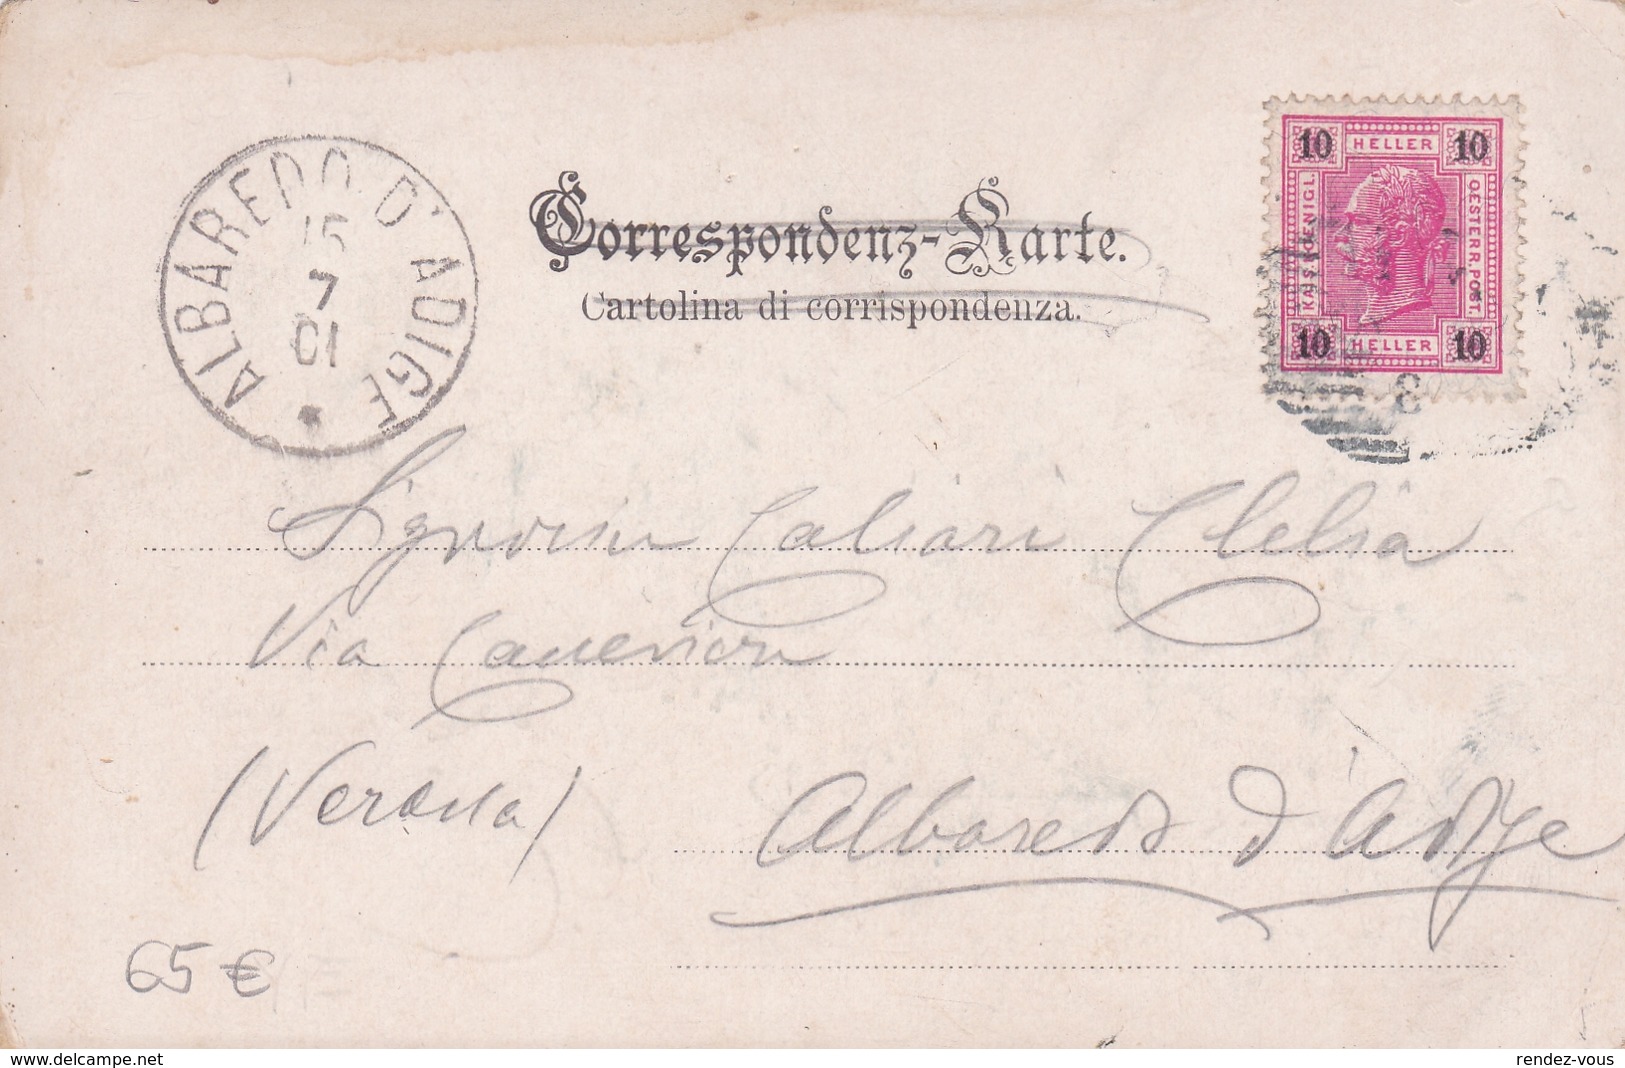 ALBAREDO D'ADIGE
15
7
01
Correspondenz-Karte.
Cartolina di corrispondenza.
10 HELLER 10
KAIS. KOENIGL. OESTERR. POST.
10 HELLER 10
8
Signorina Caliari Clelia
Via
(Verona) Albaredo d'Adige
65 €
www.delcampe.net
rendez-vous